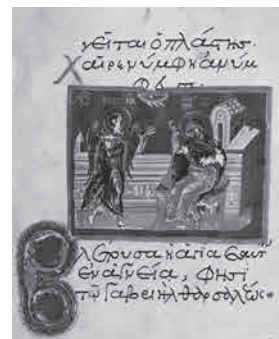 γεῖται ὁ πλάστης·
χαῖρε νύμφη ἀνύμ
Βλέπουσα ἡ ἁγία ἑαυτ
ἐν ἁγνεία, φησὶ
τῷ Γαβριὴλ θαρσαλέως